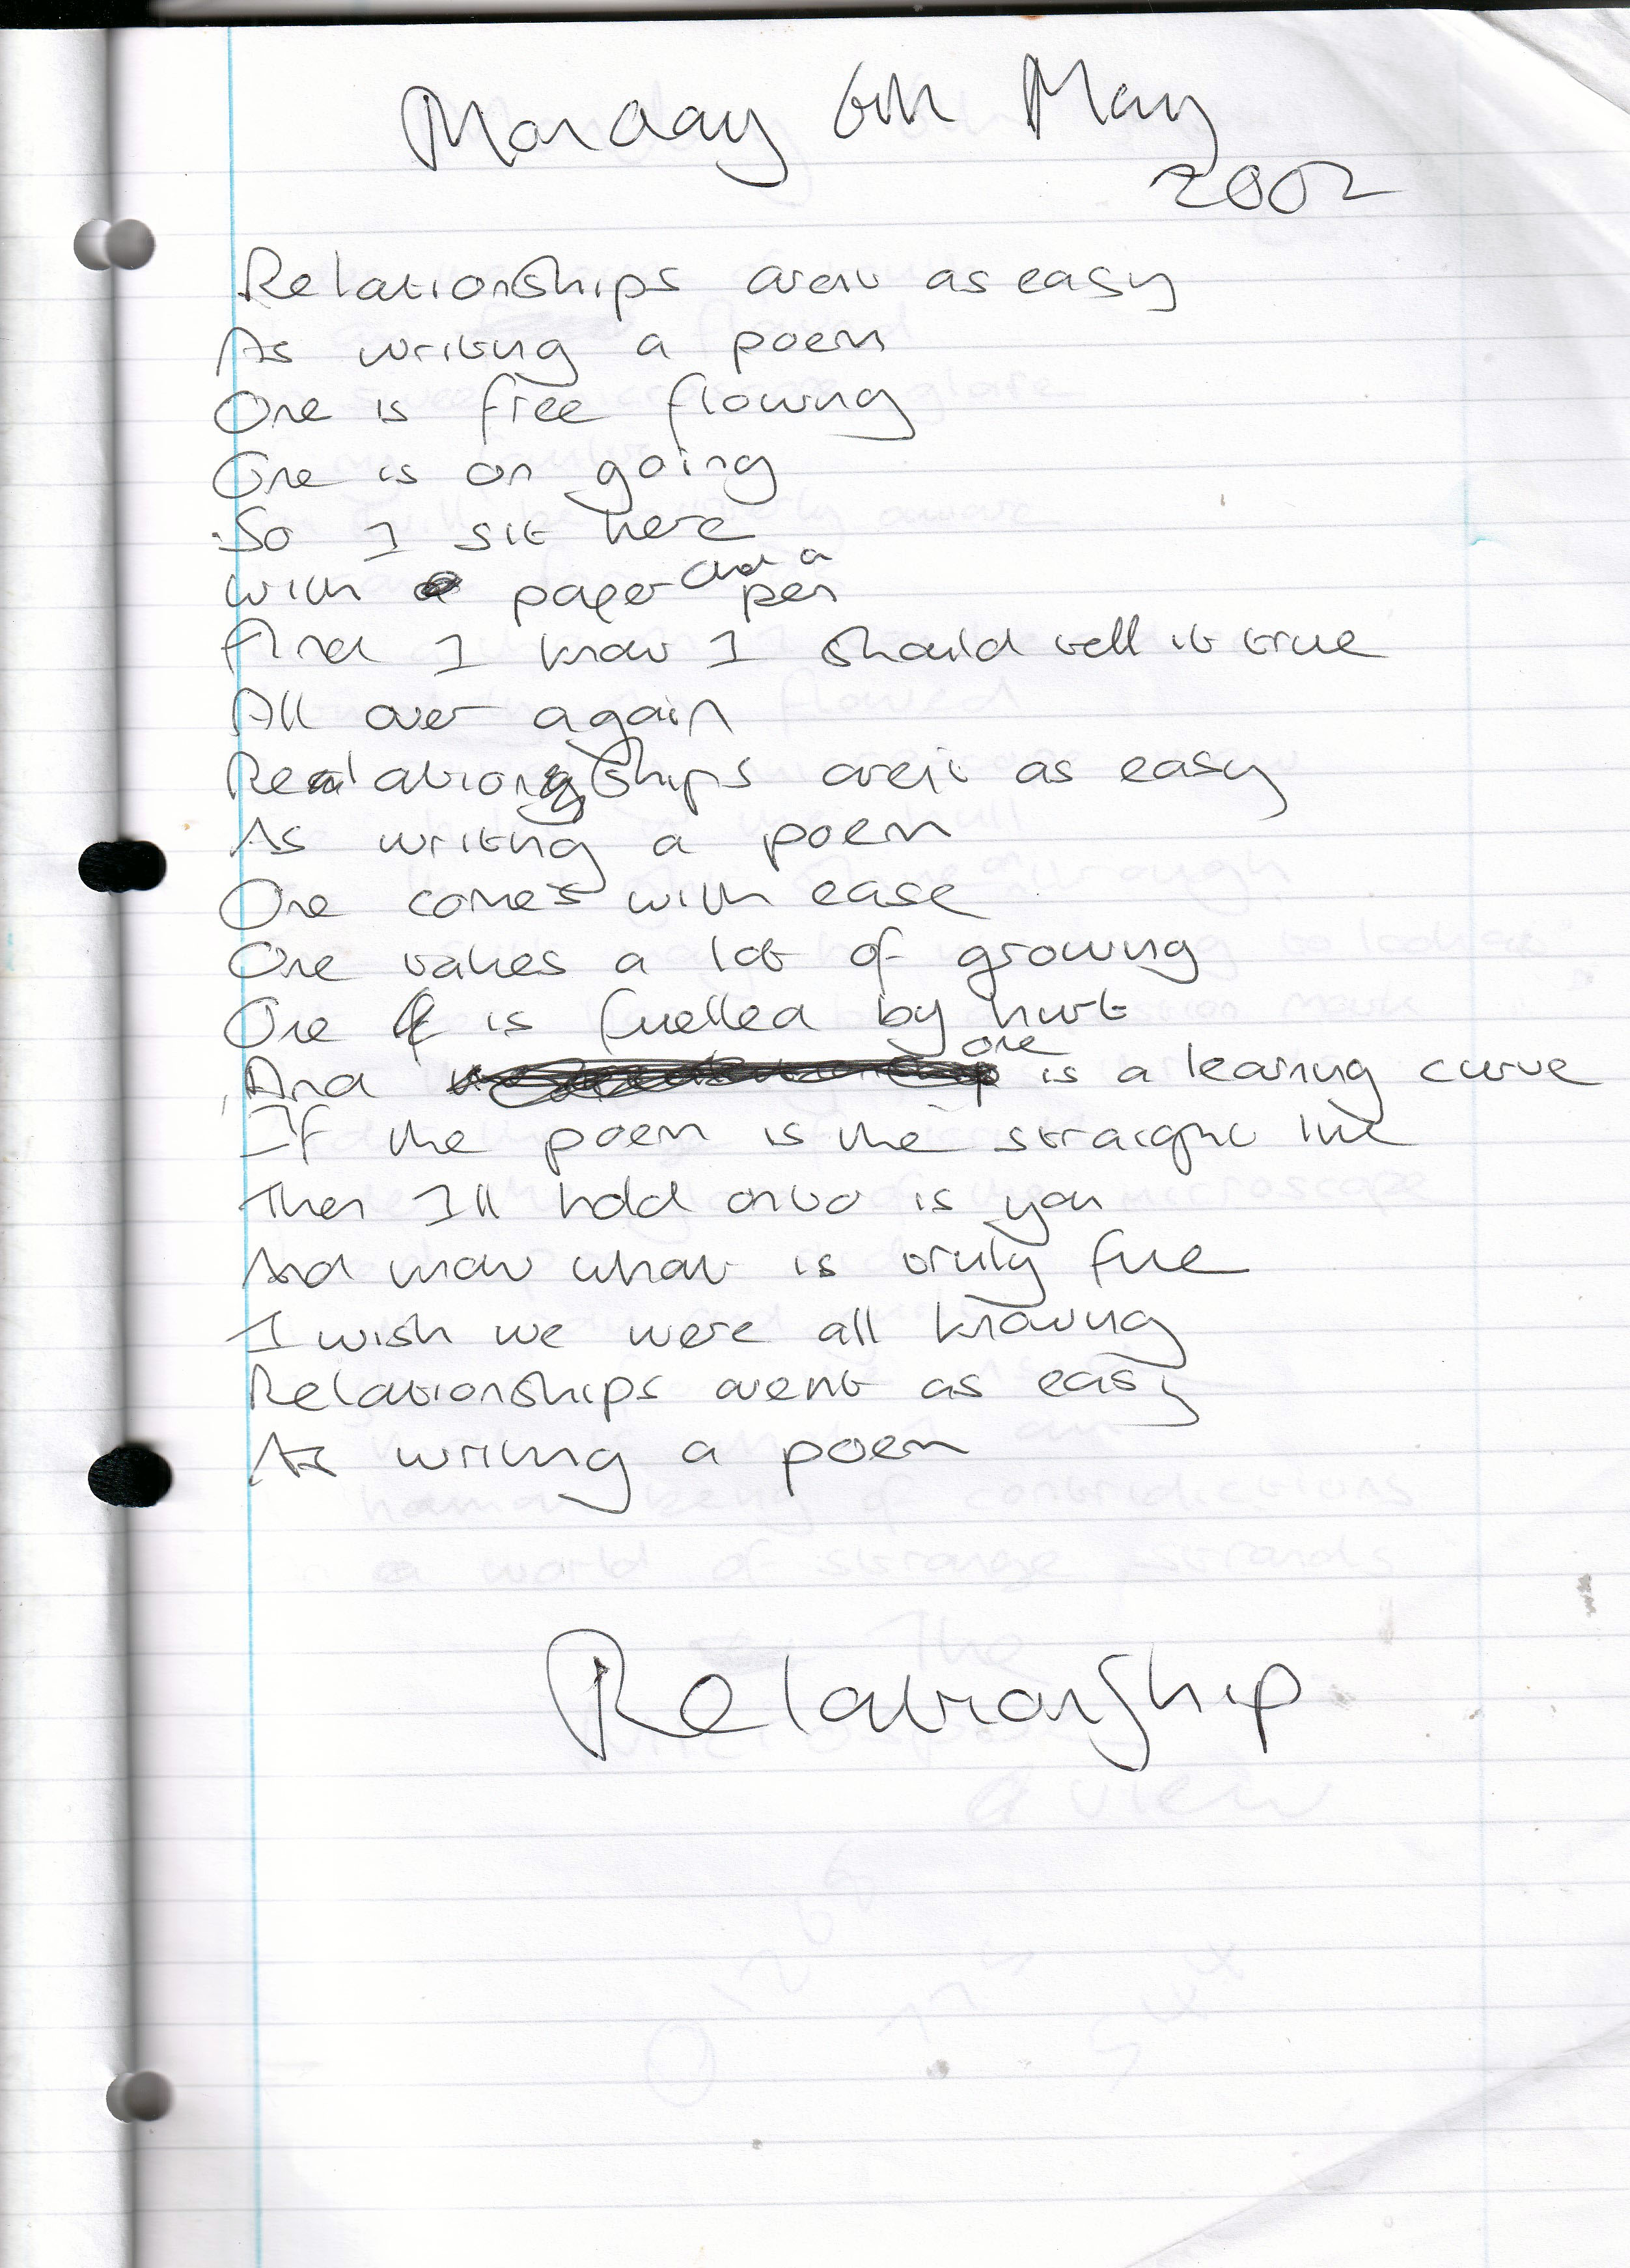 Monday 6th May
2002
Relationships arent as easy
As writing a poem
One is free flowing
One is on going
So I sit here
With paper and a pen
And I know I should tell it true
All over again
Relationships arent as easy
As writing a poem
One comes with ease
One takes a lot of growing
One is fuelled by hurt
And one is a learning curve
If the poem is the straight line
Then I'll hold onto is you
And know what is truly fue
I wish we were all knowing
Relationships arent as easy
As writing a poem
Relationship